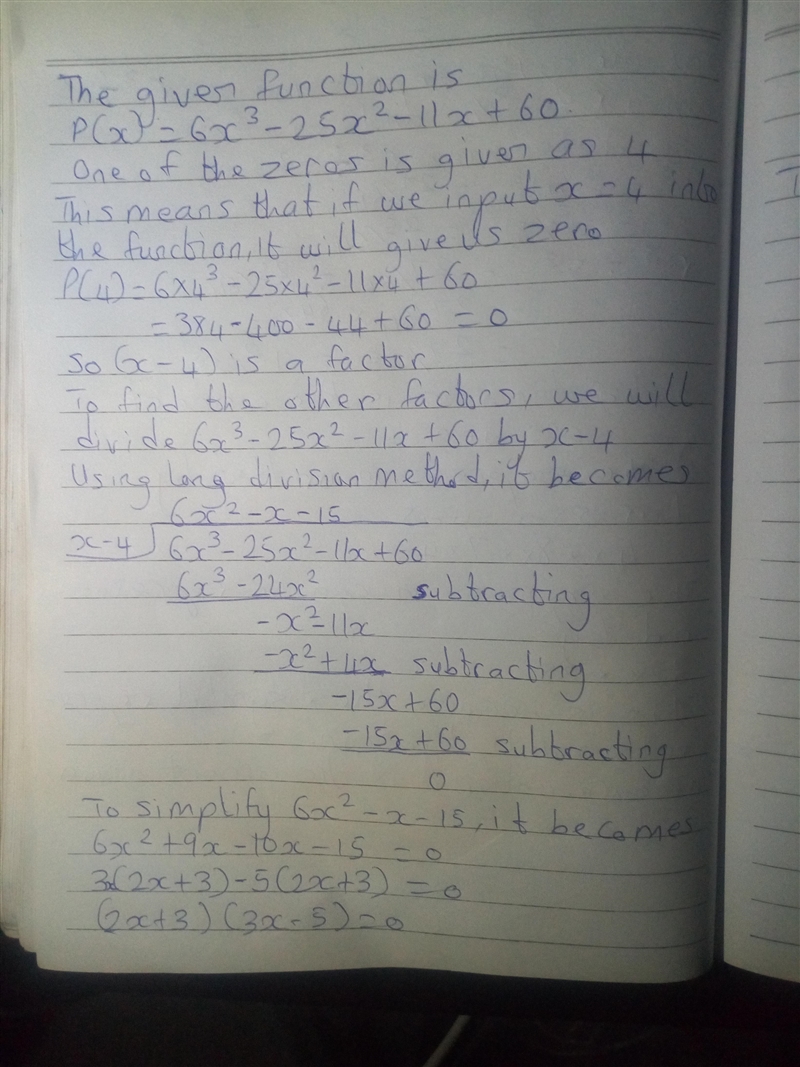 The given function is
P(x) = 6x³ - 25x² - 11x + 60.
One of the zeros is given as 4
This means that if we input x = 4 into
the function, it will give us zero
P(4) = 6×4³ - 25×4² - 11×4 + 60
= 384 - 400 - 44 + 60 = 0
So (x - 4) is a factor
To find the other factors, we will
divide 6x³ - 25x² - 11x + 60 by x - 4
Using long division method, it becomes
6x² - x - 15
x - 4 6x³ - 25x² - 11x + 60
6x³ - 24x² subtracting
- x² - 11x
- x² + 4x subtracting
- 15x + 60
- 15x + 60 subtracting
0
To simplify 6x² - x - 15, it becomes
6x² + 9x - 10x - 15 = 0
3x(2x + 3) - 5(2x + 3) = 0
(2x + 3)(3x - 5) = 0